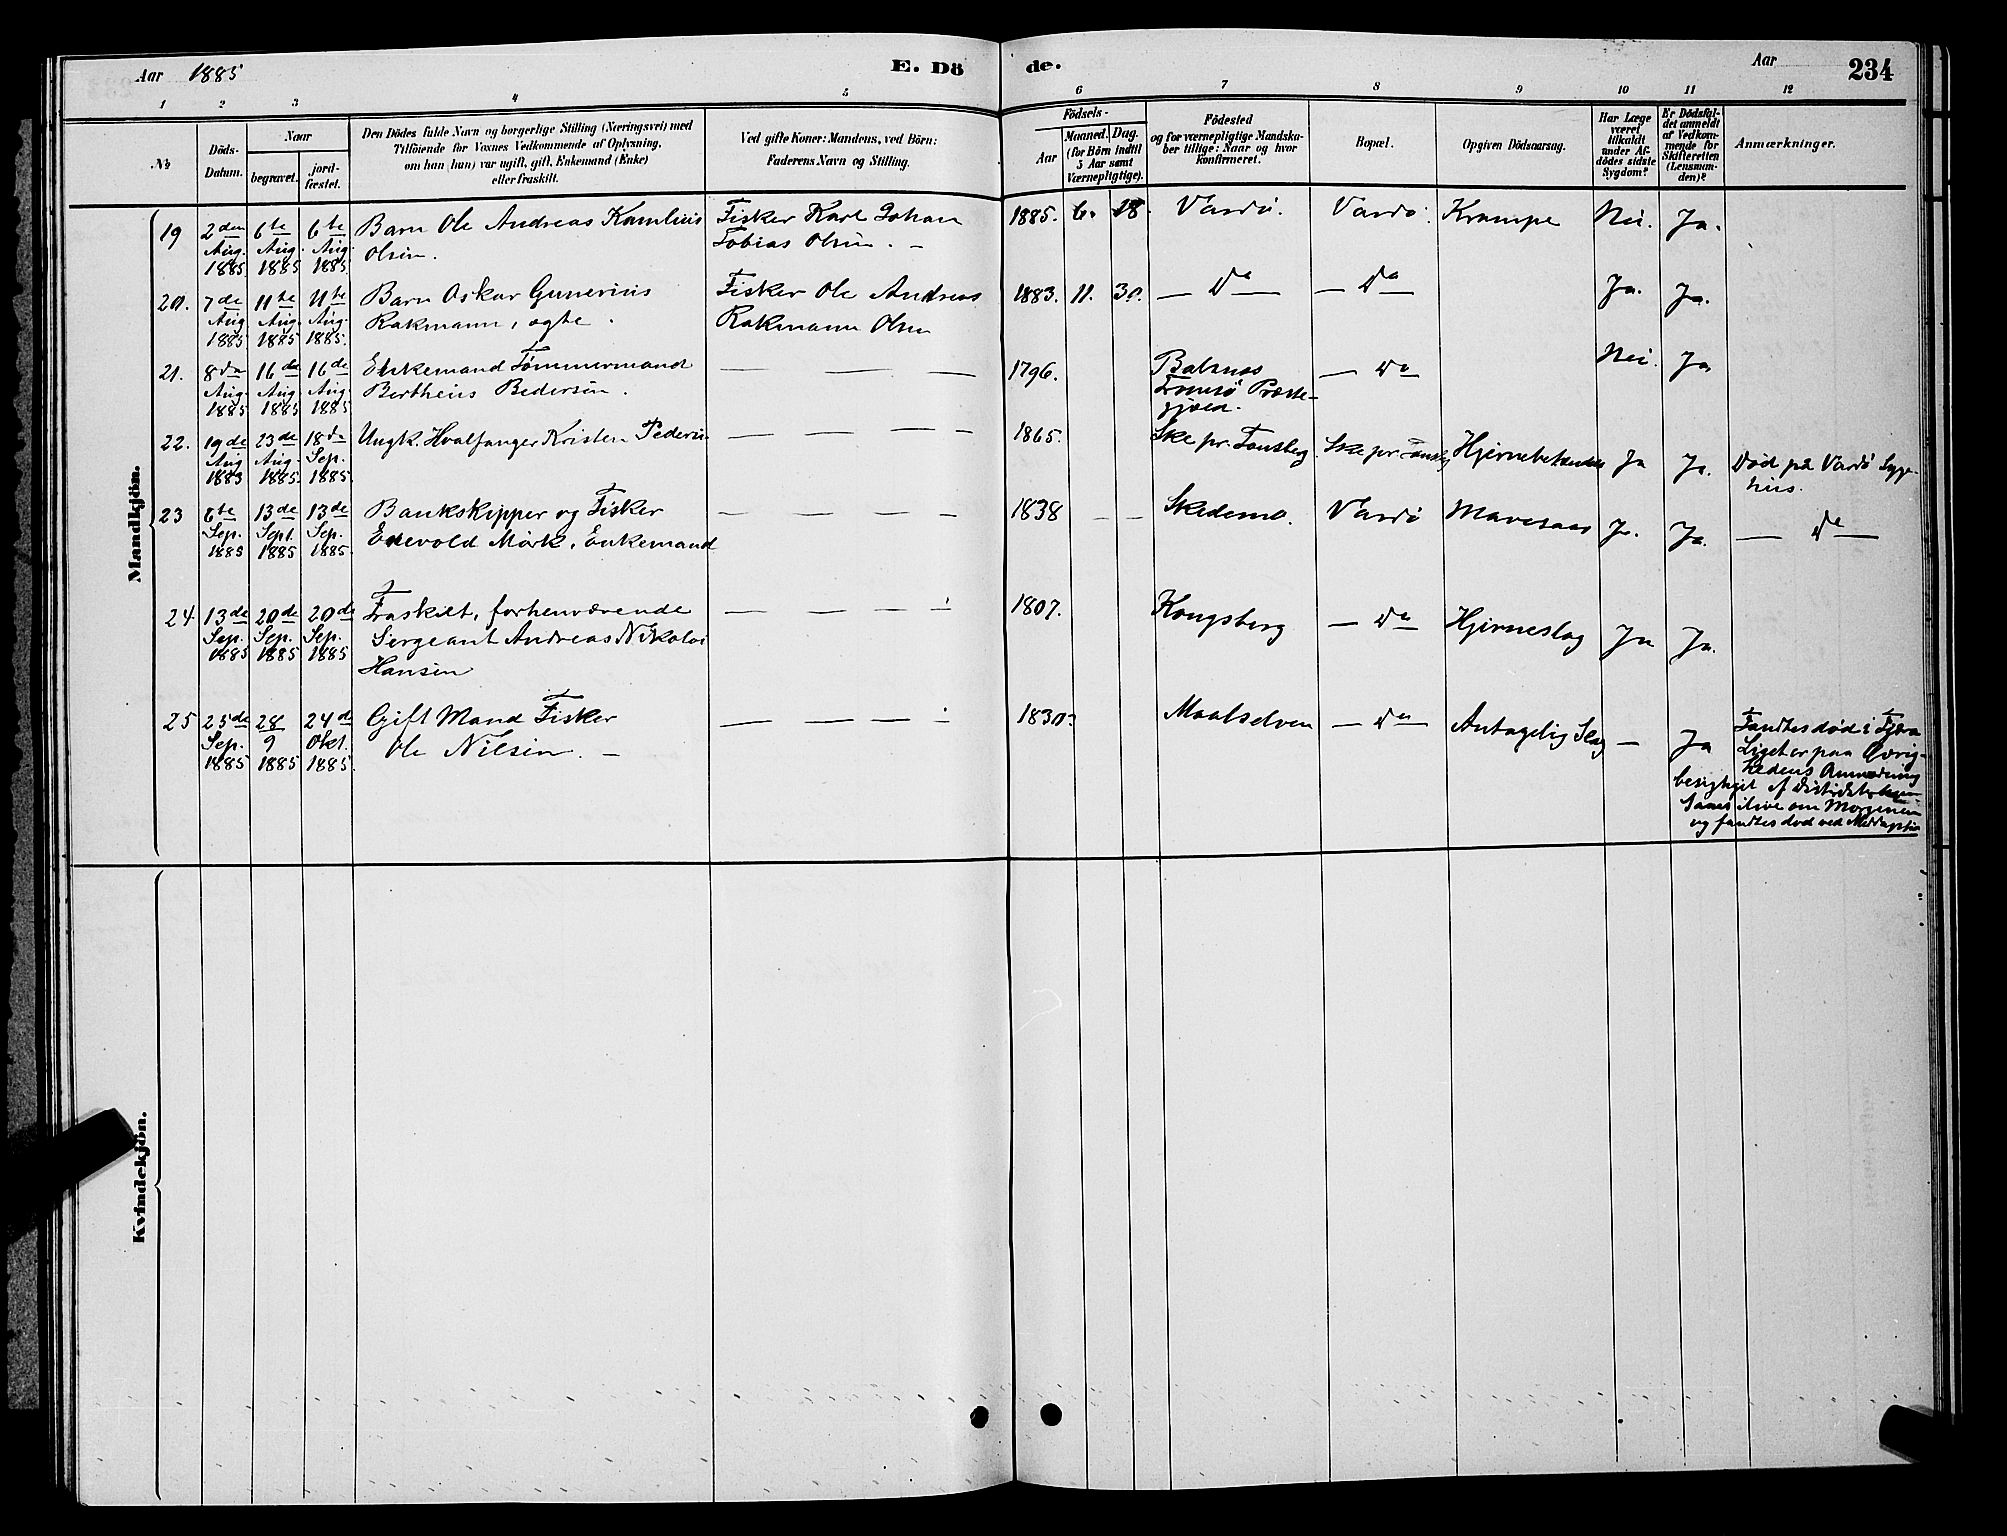 Aar 1885
E. Dö
de.
Aar
234
1 2 3 4 5 6 7 8 9 10 11 12
No.
Döds-
Datum.
Naar
begravet.
jord-
fæstet.
Den Dödes fulde Navn og borgerlige Stilling (Næringsvei) med
Tilföiende for Voxnes Vedkommende af Oplysning,
om han (hun) var ugift, gift, Enkemand (Enke)
eller fraskilt.
Ved gifte Koner: Mandens, ved Börn:
Faderens Navn og Stilling.
Födsels-
Aar
Maaned. Dag.
(for Börn indtil
5 Aar samt
Værnepligtige).
Födested
og for værnepligtige Mandska-
ber tillige: Naar og hvor
konfirmeret.
Bopæl.
Opgiven Dödsaarsag.
Har Læge
været
tilkaldt
under Af-
dödes sidste
Sygdom?
Er Dödsfal-
det anmeldt
af Vedkom-
mende for
Skifteretten
(Lensman-
den)?
Anmærkninger.
Mandkjön.
19 2den Aug. 1885 6te Aug. 1885 6te Aug. 1885 Barn Ole Andreas Kamlius Fisker Karl Johan 1885. 6. 18. Vardö. Vardö. Krampe Nei. Ja.
Olsen. Tobias Olsen. —
20. 7de Aug. 1885 11te Aug. 1885 11te Aug. 1885. Barn Oskar Gunerius Fisker Ole Andreas 1883. 11. 30. — Do — — Do — Ja. Ja.
Rakmann, ægte. Rakmann Olsen
21. 8de Aug. 1885 16de Aug. 1885 16de Aug. 1885 Enkemand Tømmermand — — — 1796. Balsnes — Do — Nei. Ja
Bertheus Pedersen. Tromsö Præste-
gjæld.
22. 19de Aug. 1885 23de Aug. 1885. 18de Sep. 1885. Ungk. Hvalfanger Kristen Pedersen — — — — 1865. Ske pr. Tønsberg Ske pr. Tønsberg Hjernebetændelse Ja Ja. Död på Vardö Syge-
hus.
23 6te Sep. 1885 13de Sept. 1885 13de Sep. 1885. Bankskipper og Fisker — — — — 1838 — — Skedsmo. Vardö Mavesaar Ja. Ja. — Do —
Edevold Mörk, Enkemand
24. 13de Sep. 1885 20de Sep. 1885 20de Sep. 1885 Fraskilt, forhenværende — — — — 1807. Kongsberg — Do — Hjerneslag Ja Ja.
Sergeant Andreas Nikolai
Hansen
25 25de Sep. 1885 28/9 1885 24de Okt. 1885. Gift Mand Fisker — — — — 1830? Maalselven — Do — Antagelig Slag — Ja Fandtes död i Fjæra
Ole Nilsen. — Liget er paa Øvrig-
hedens Anmodning
besigtiget af
Saaes ilive om Morgenen
og fandtes död ved
Kvindekjön.